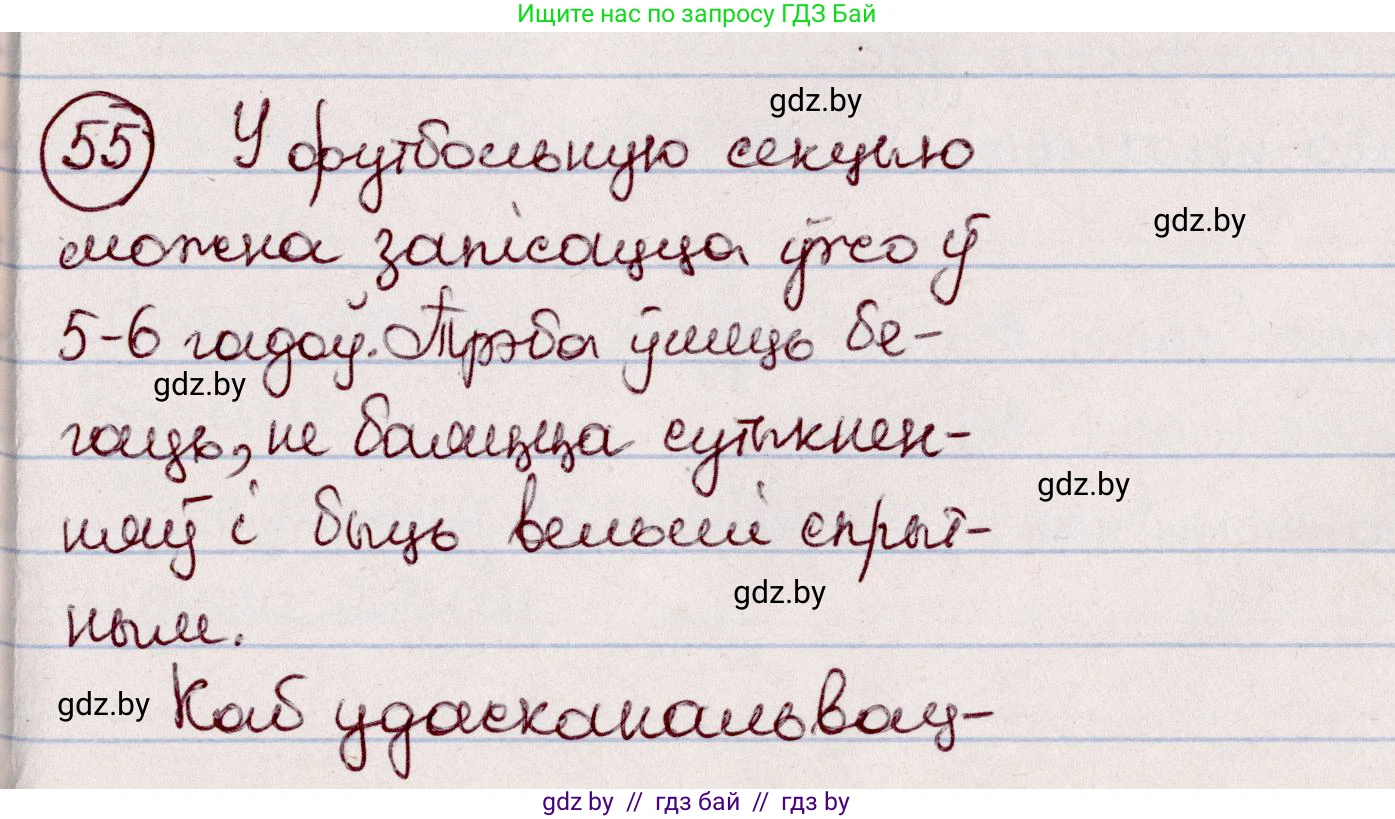 Ищите нас по запросу ГДЗ Бай
gdz.by
55 У футбольную секцыю
gdz.by
можна запісацца ўжо ў
5-6 гадоў. Трэба ўмець бе-
gdz.by
гаць, не баяцца сутыкнен-
gdz.by
няў і быць вельмі спрыт-
gdz.by
ным.
gdz.by Каб удасканальвац-
gdz by // гдз бай // гдз by